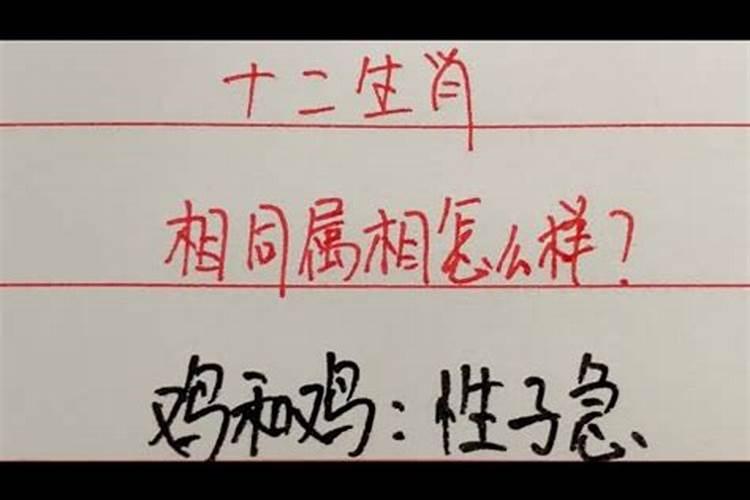 十二生肖
相同属相怎么样?
鸡和鸡:性子急、